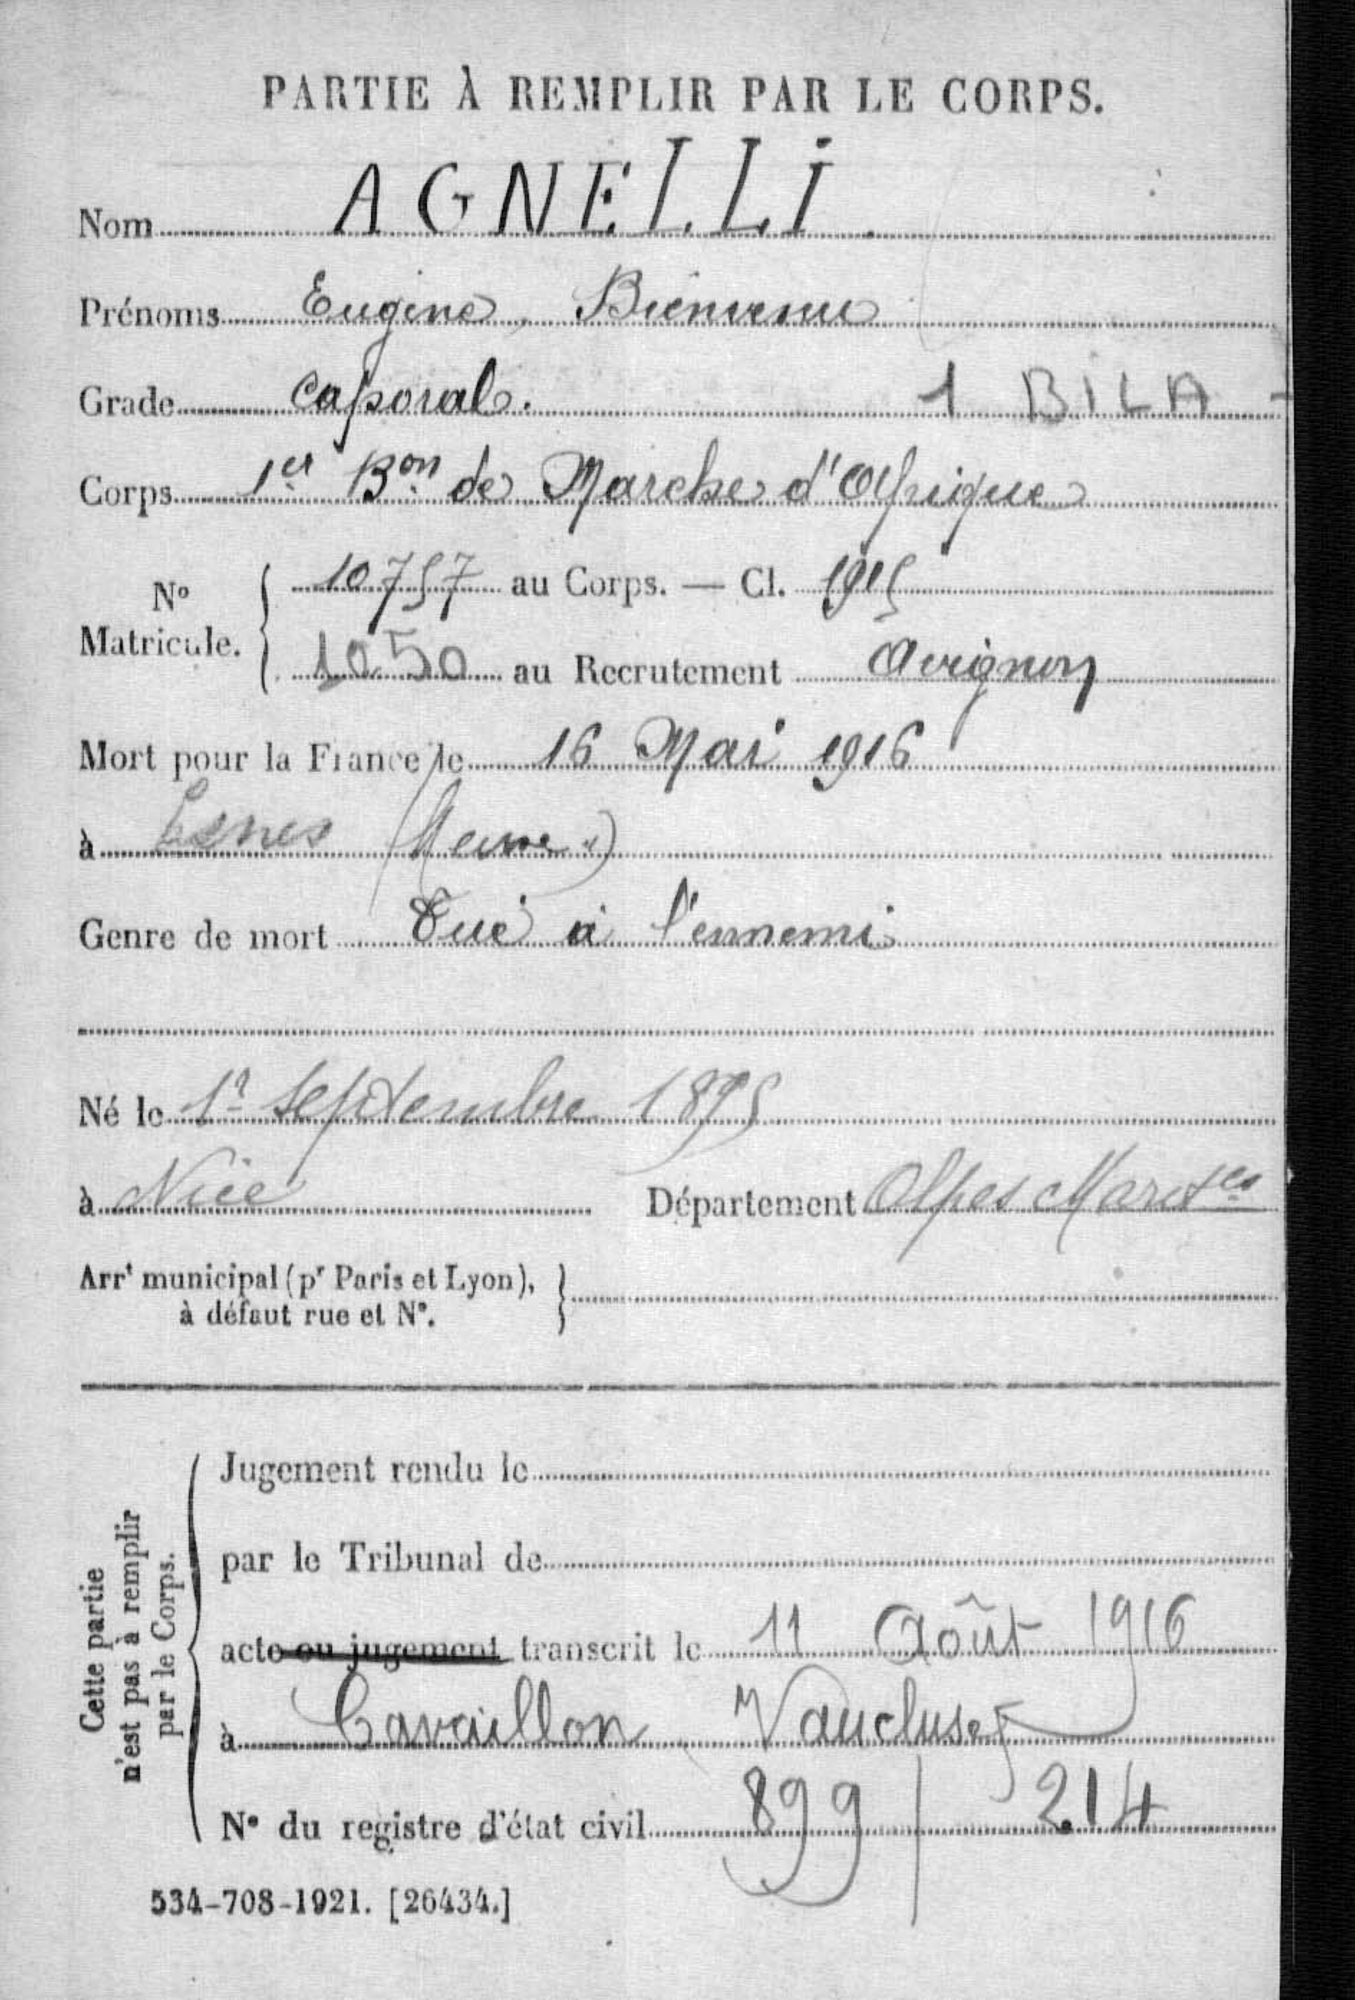 PARTIE À REMPLIR PAR LE CORPS.
Nom AGNELLI
Prénoms Eugène, Bienvenu
Grade Caporal. 1 BILA -
Corps 1er Bon de Marche d'Afrique
No Matricule. { 10757 au Corps. — Cl. 1915
1050 au Recrutement Avignon
Mort pour la France le 16 Mai 1916
à Esnes (Meuse)
Genre de mort Tué à l'ennemi
Né le 1er Septembre 1895
à Nice Département Alpes Marites
Arrt municipal (pr Paris et Lyon), }
à défaut rue et N°.
Cette partie
n'est pas à remplir
par le Corps.
Jugement rendu le
par le Tribunal de
acte ou jugement transcrit le 11 Août 1916
à Cavaillon Vaucluse
N° du registre d'état civil 899 / 214
534-708-1921. [26434.]